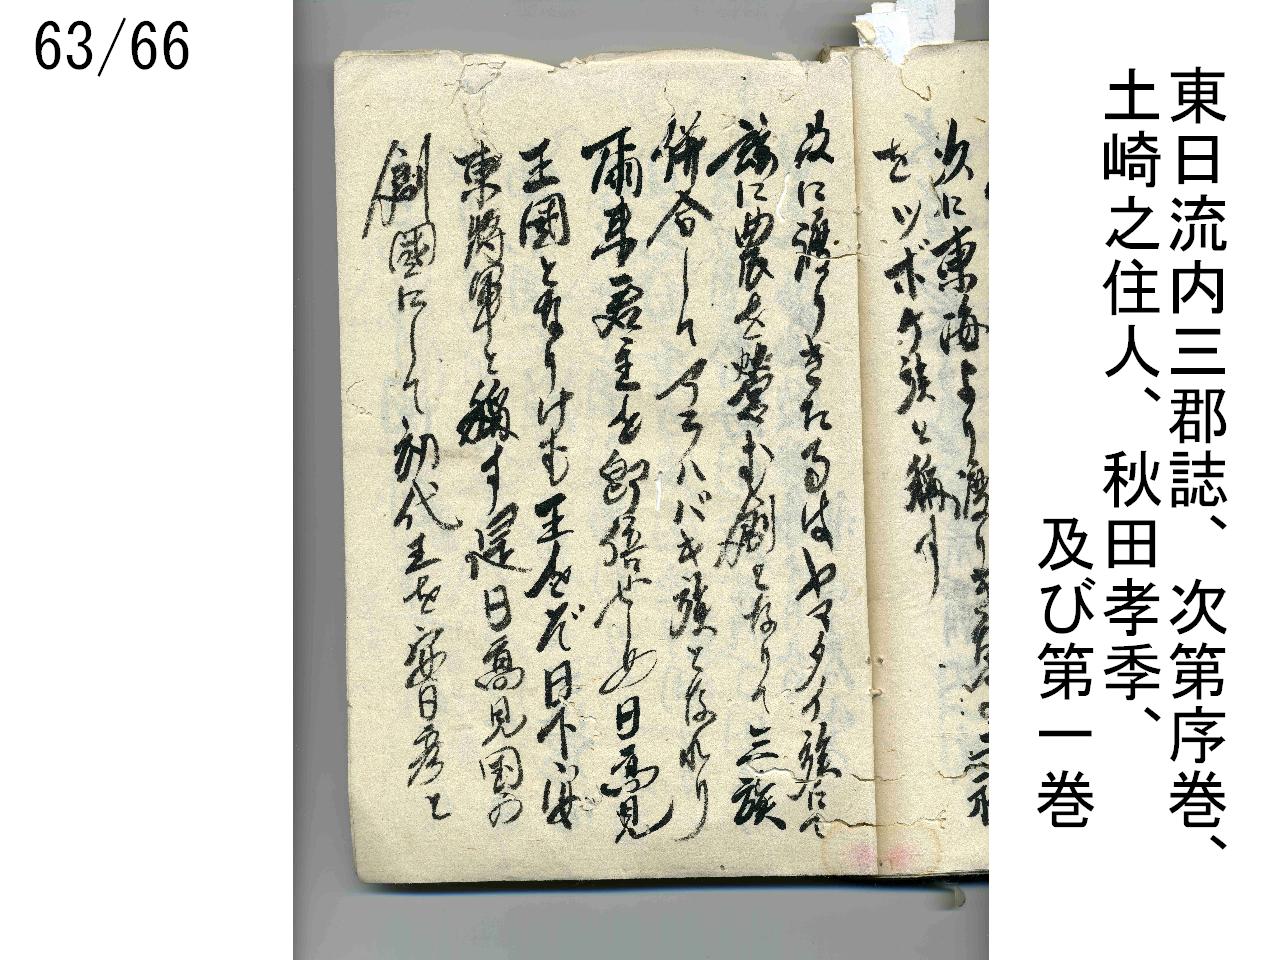 63/66
東日流内三郡誌、次第序巻、
土崎之住人、秋田孝季、
及び第一巻
次に東海より渡り
をツボケ族と稱す
次に渡りきたるはヤマタイ族にて
族に農を營む創となりて三族
併合してアラハバキ族となれり
爾来君主を即位せしめ日高見
王國となりけむ王をば日下
東將軍と稱す是日高見国の
創國にして初代王を安日彦と